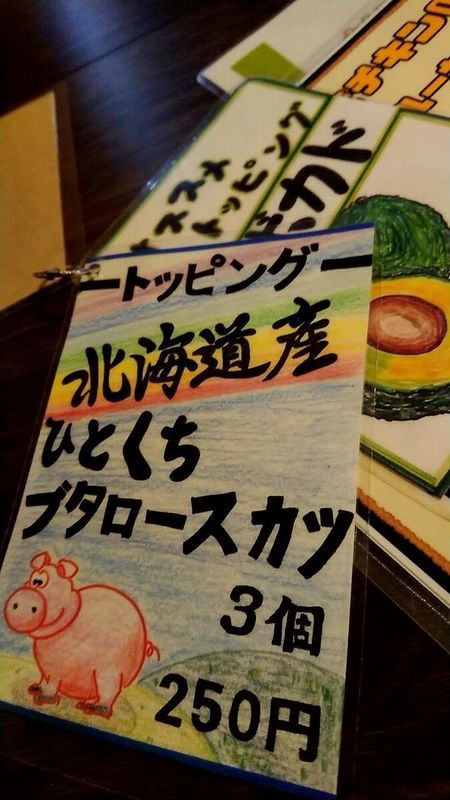 ートッピングー
北海道産
ひとくち
ブタロースカツ
3個
250円
オススメ
トッピング
カド
チキン